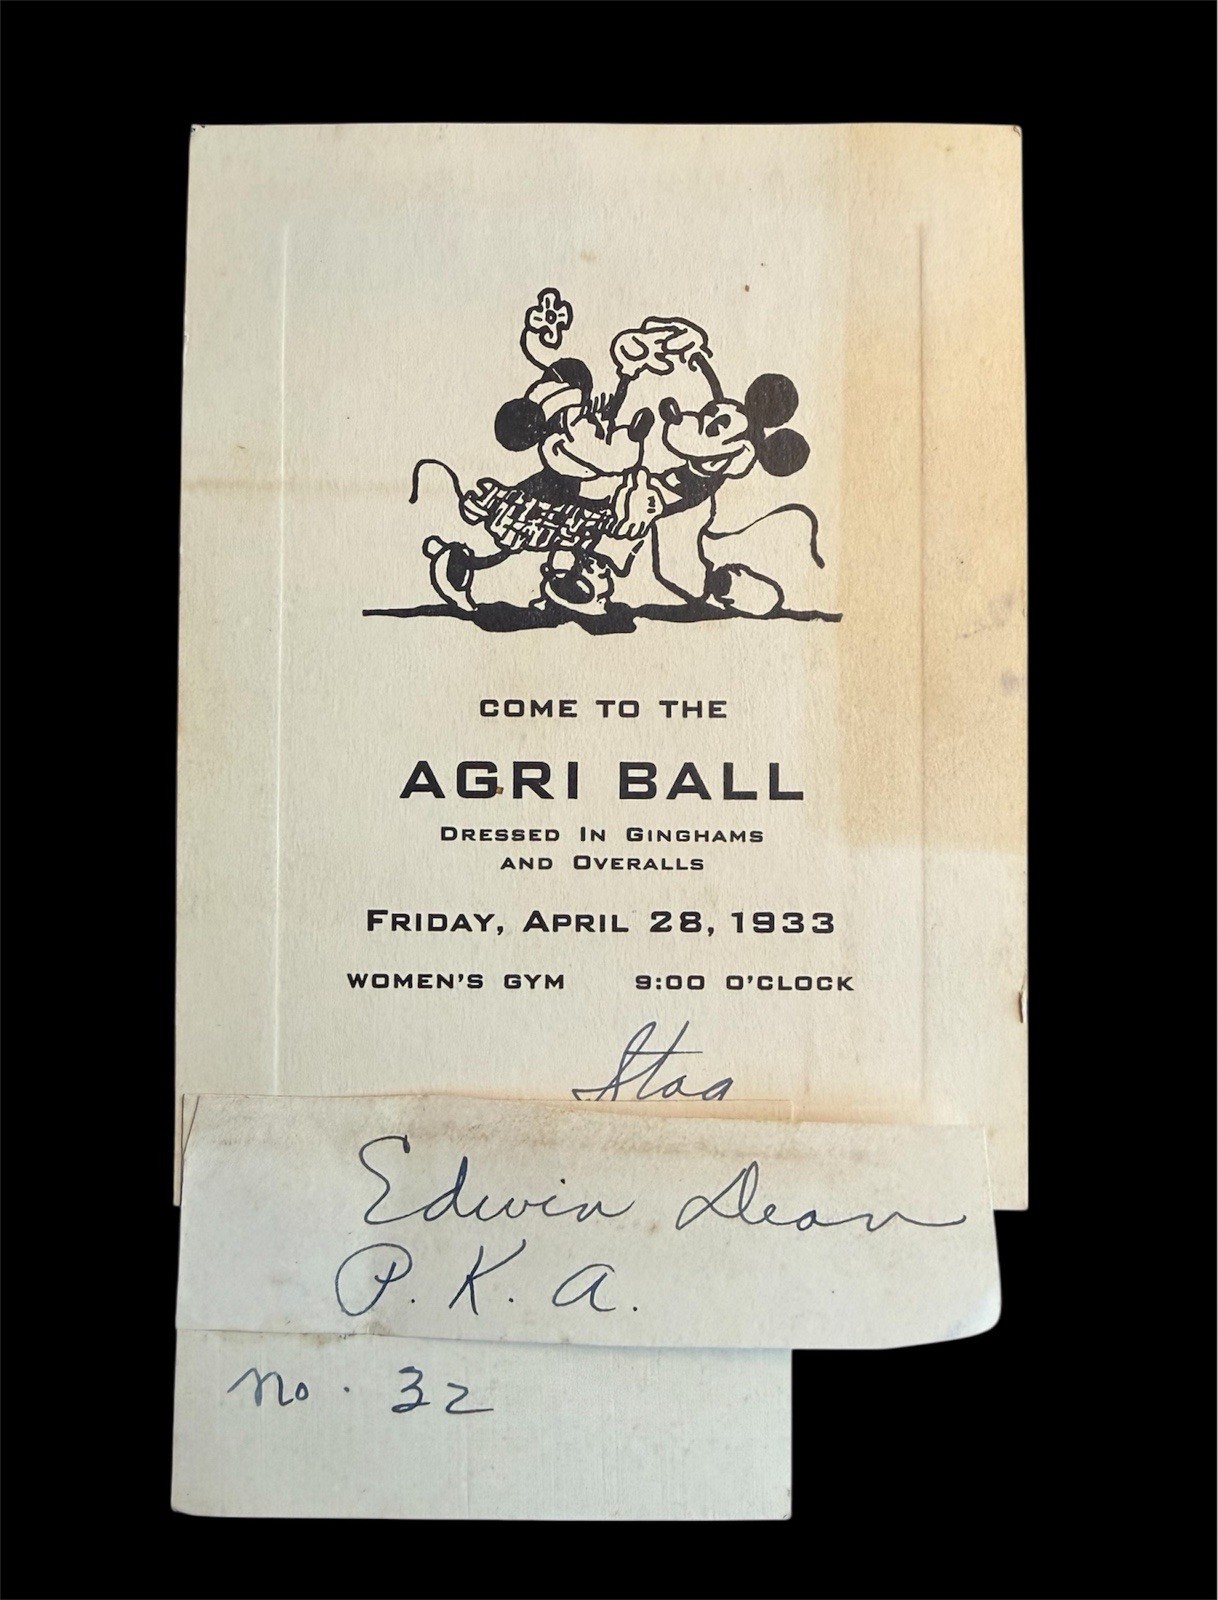 COME TO THE
AGRI BALL
DRESSED IN GINGHAMS
AND OVERALLS
FRIDAY, APRIL 28, 1933
WOMEN'S GYM 9:00 O'CLOCK
Stag
Edwin Dean
P. K. A.
No. 32